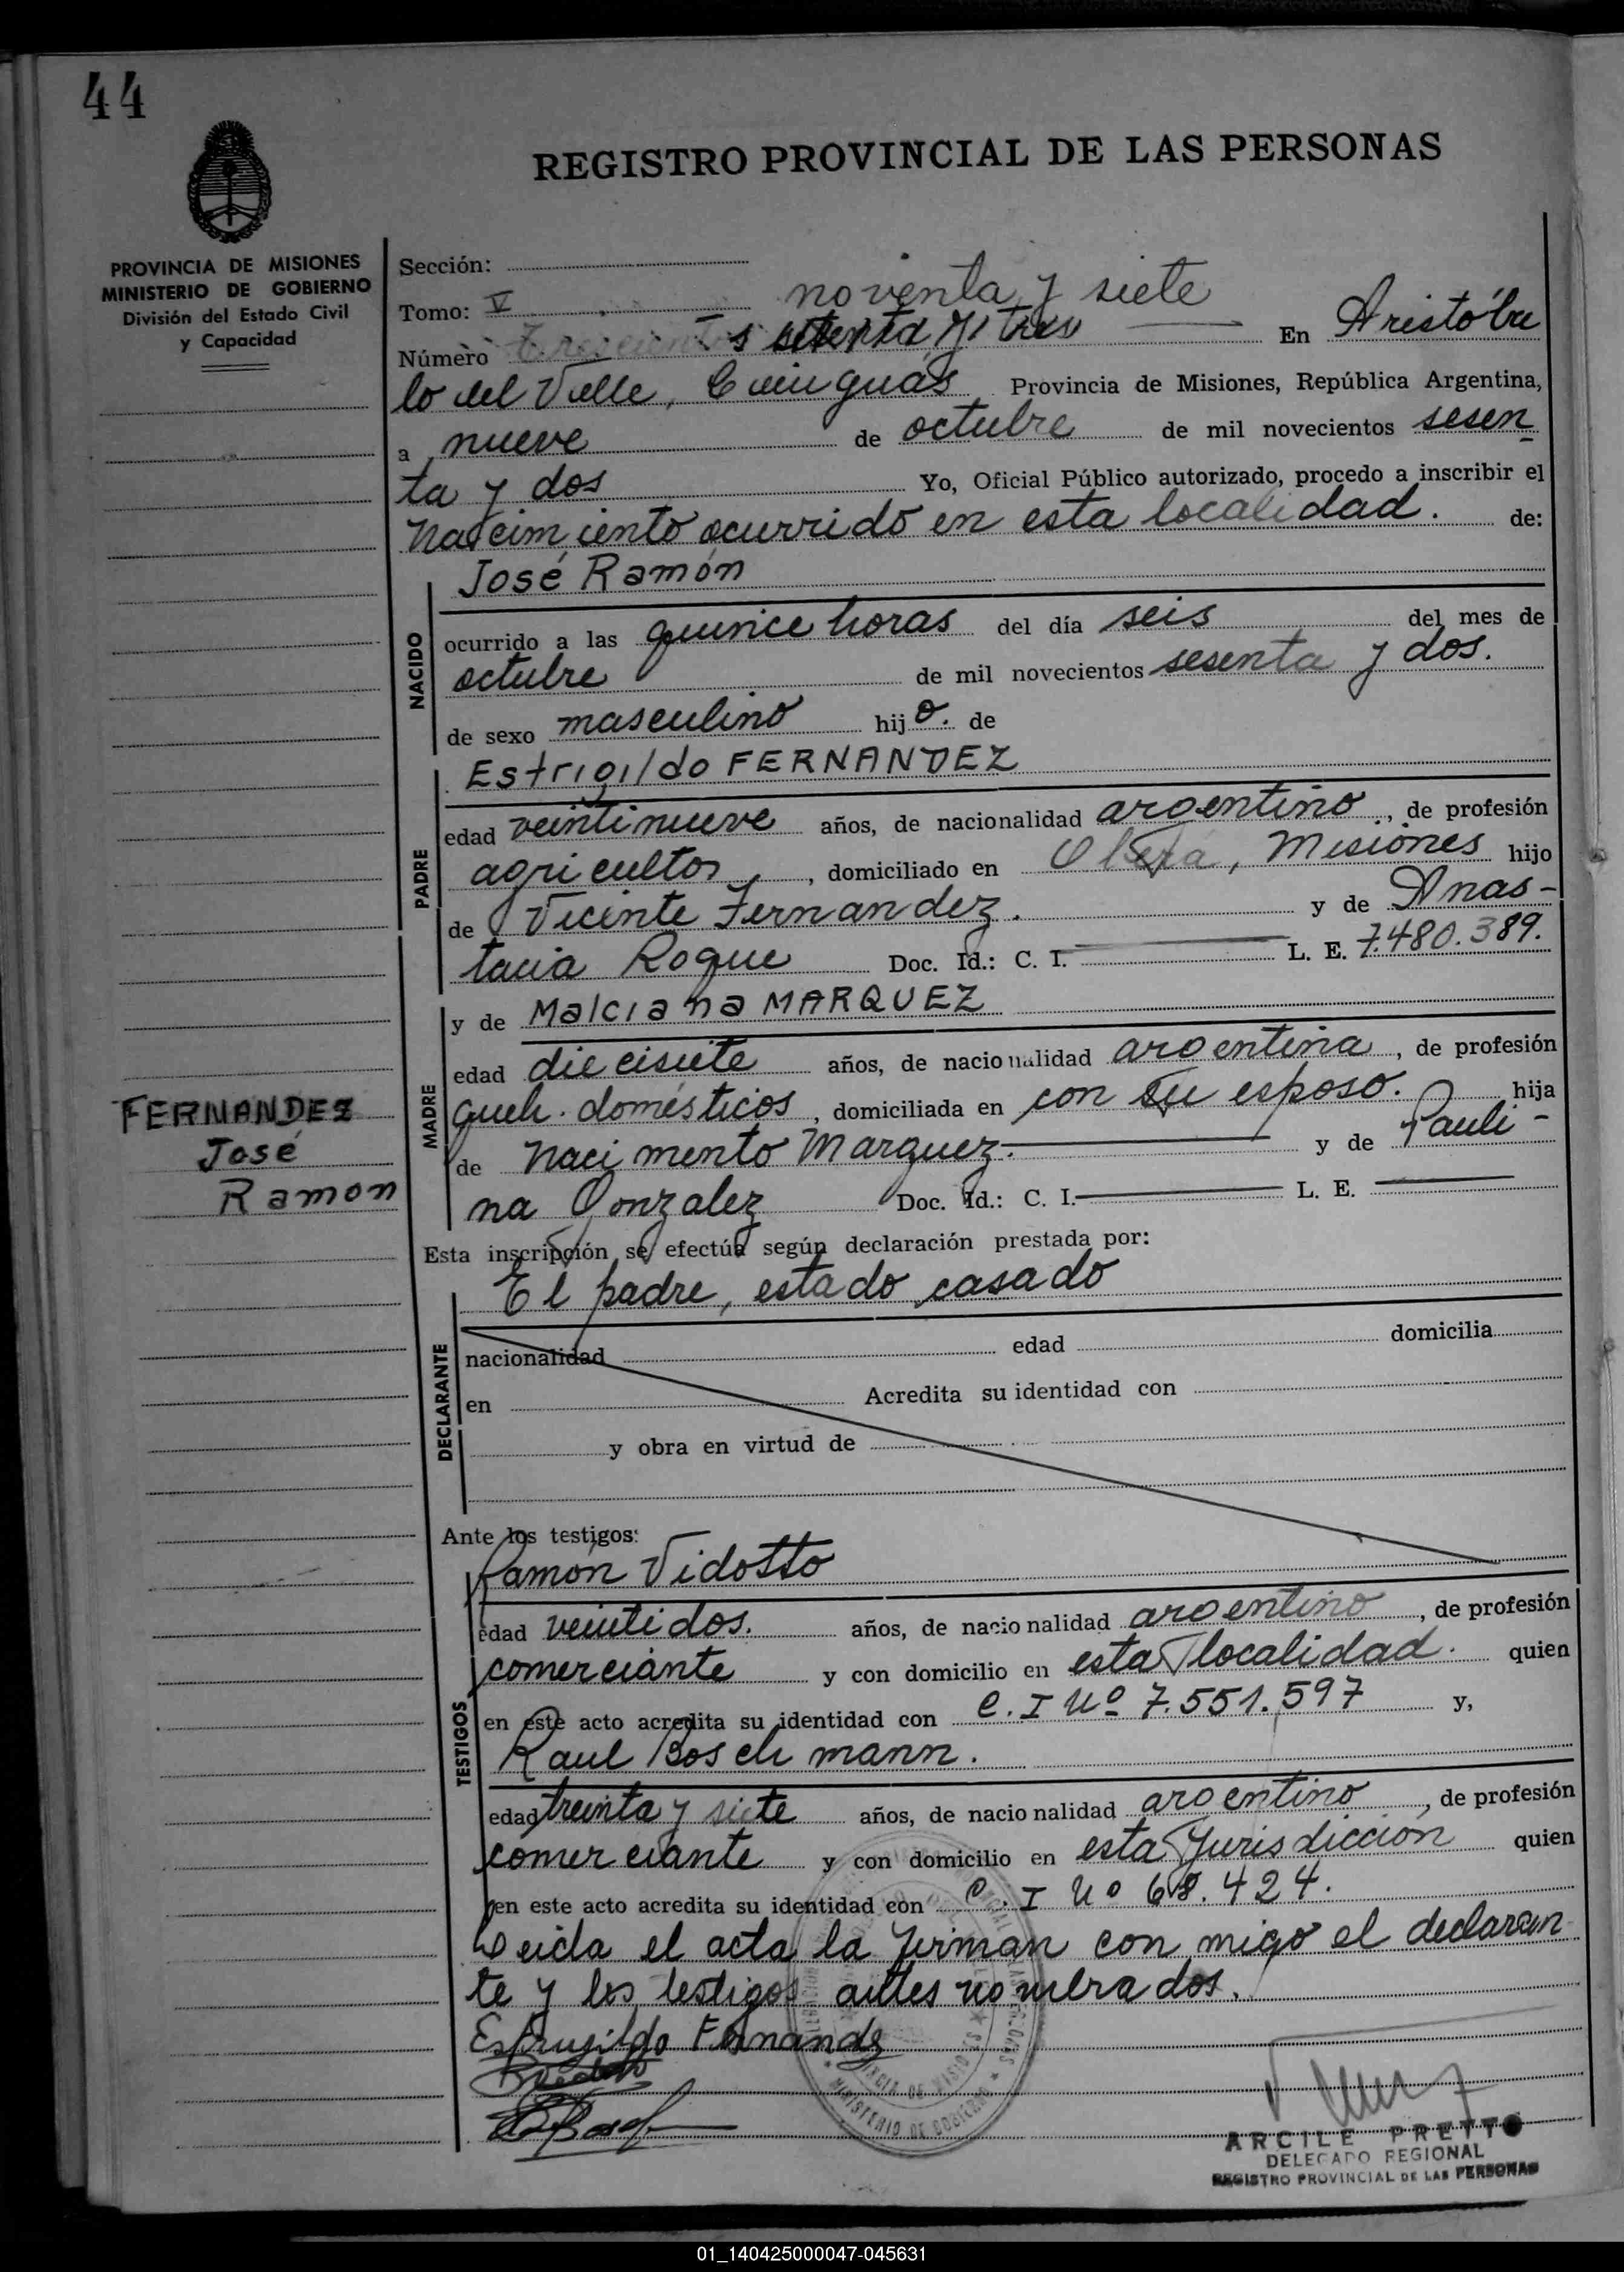 44
REGISTRO PROVINCIAL DE LAS PERSONAS
PROVINCIA DE MISIONES
MINISTERIO DE GOBIERNO
División del Estado Civil
y Capacidad
Sección:
Tomo: V noventa y siete
Número setenta y tres En Aristóbu
lo del Valle, Cainguás Provincia de Misiones, República Argentina,
a nueve de octubre de mil novecientos sesen
ta y dos Yo, Oficial Público autorizado, procedo a inscribir el
nacimiento ocurrido en esta localidad. de:
José Ramón
NACIDO
ocurrido a las quince horas del día seis del mes de
octubre de mil novecientos sesenta y dos.
de sexo masculino hijo. de
Estrigildo FERNANDEZ
PADRE
edad veintinueve años, de nacionalidad argentino, de profesión
agricultor, domiciliado en Oberá, Misiones hijo
de Vicente Fernandez. y de Anas-
tacia Roque Doc. Id.: C. I. L. E. 7.480.389.
y de Malciana MARQUEZ
MADRE
edad diecisiete años, de nacionalidad argentina, de profesión
queh. domésticos, domiciliada en con su esposo. hija
de Nacimento Marquez. y de Pauli-
na Gonzalez Doc. Id.: C. I. L. E.
FERNANDEZ
José
Ramon
Esta inscripción se efectúa según declaración prestada por:
El padre, estado casado
DECLARANTE
nacionalidad edad domicilia
en Acredita su identidad con
y obra en virtud de
Ante los testigos:
Ramón Vidotto
TESTIGOS
edad veintidos. años, de nacionalidad argentino, de profesión
comerciante y con domicilio en esta localidad. quien
en este acto acredita su identidad con C. I Nº 7.551.597 y,
Raul Boschmann.
edad treinta y siete años, de nacionalidad argentino, de profesión
comerciante y con domicilio en esta Jurisdicción quien
en este acto acredita su identidad con C. I Nº 68.424.
Leida el acta la firman con migo el declaran
te y los testigos antes nombrados.
Estrugildo Fernandz
ARCILE PRETTO
DELEGADO REGIONAL
REGISTRO PROVINCIAL DE LAS PERSONAS
MINISTERIO DE GOBIERNO
01_140425000047-045631